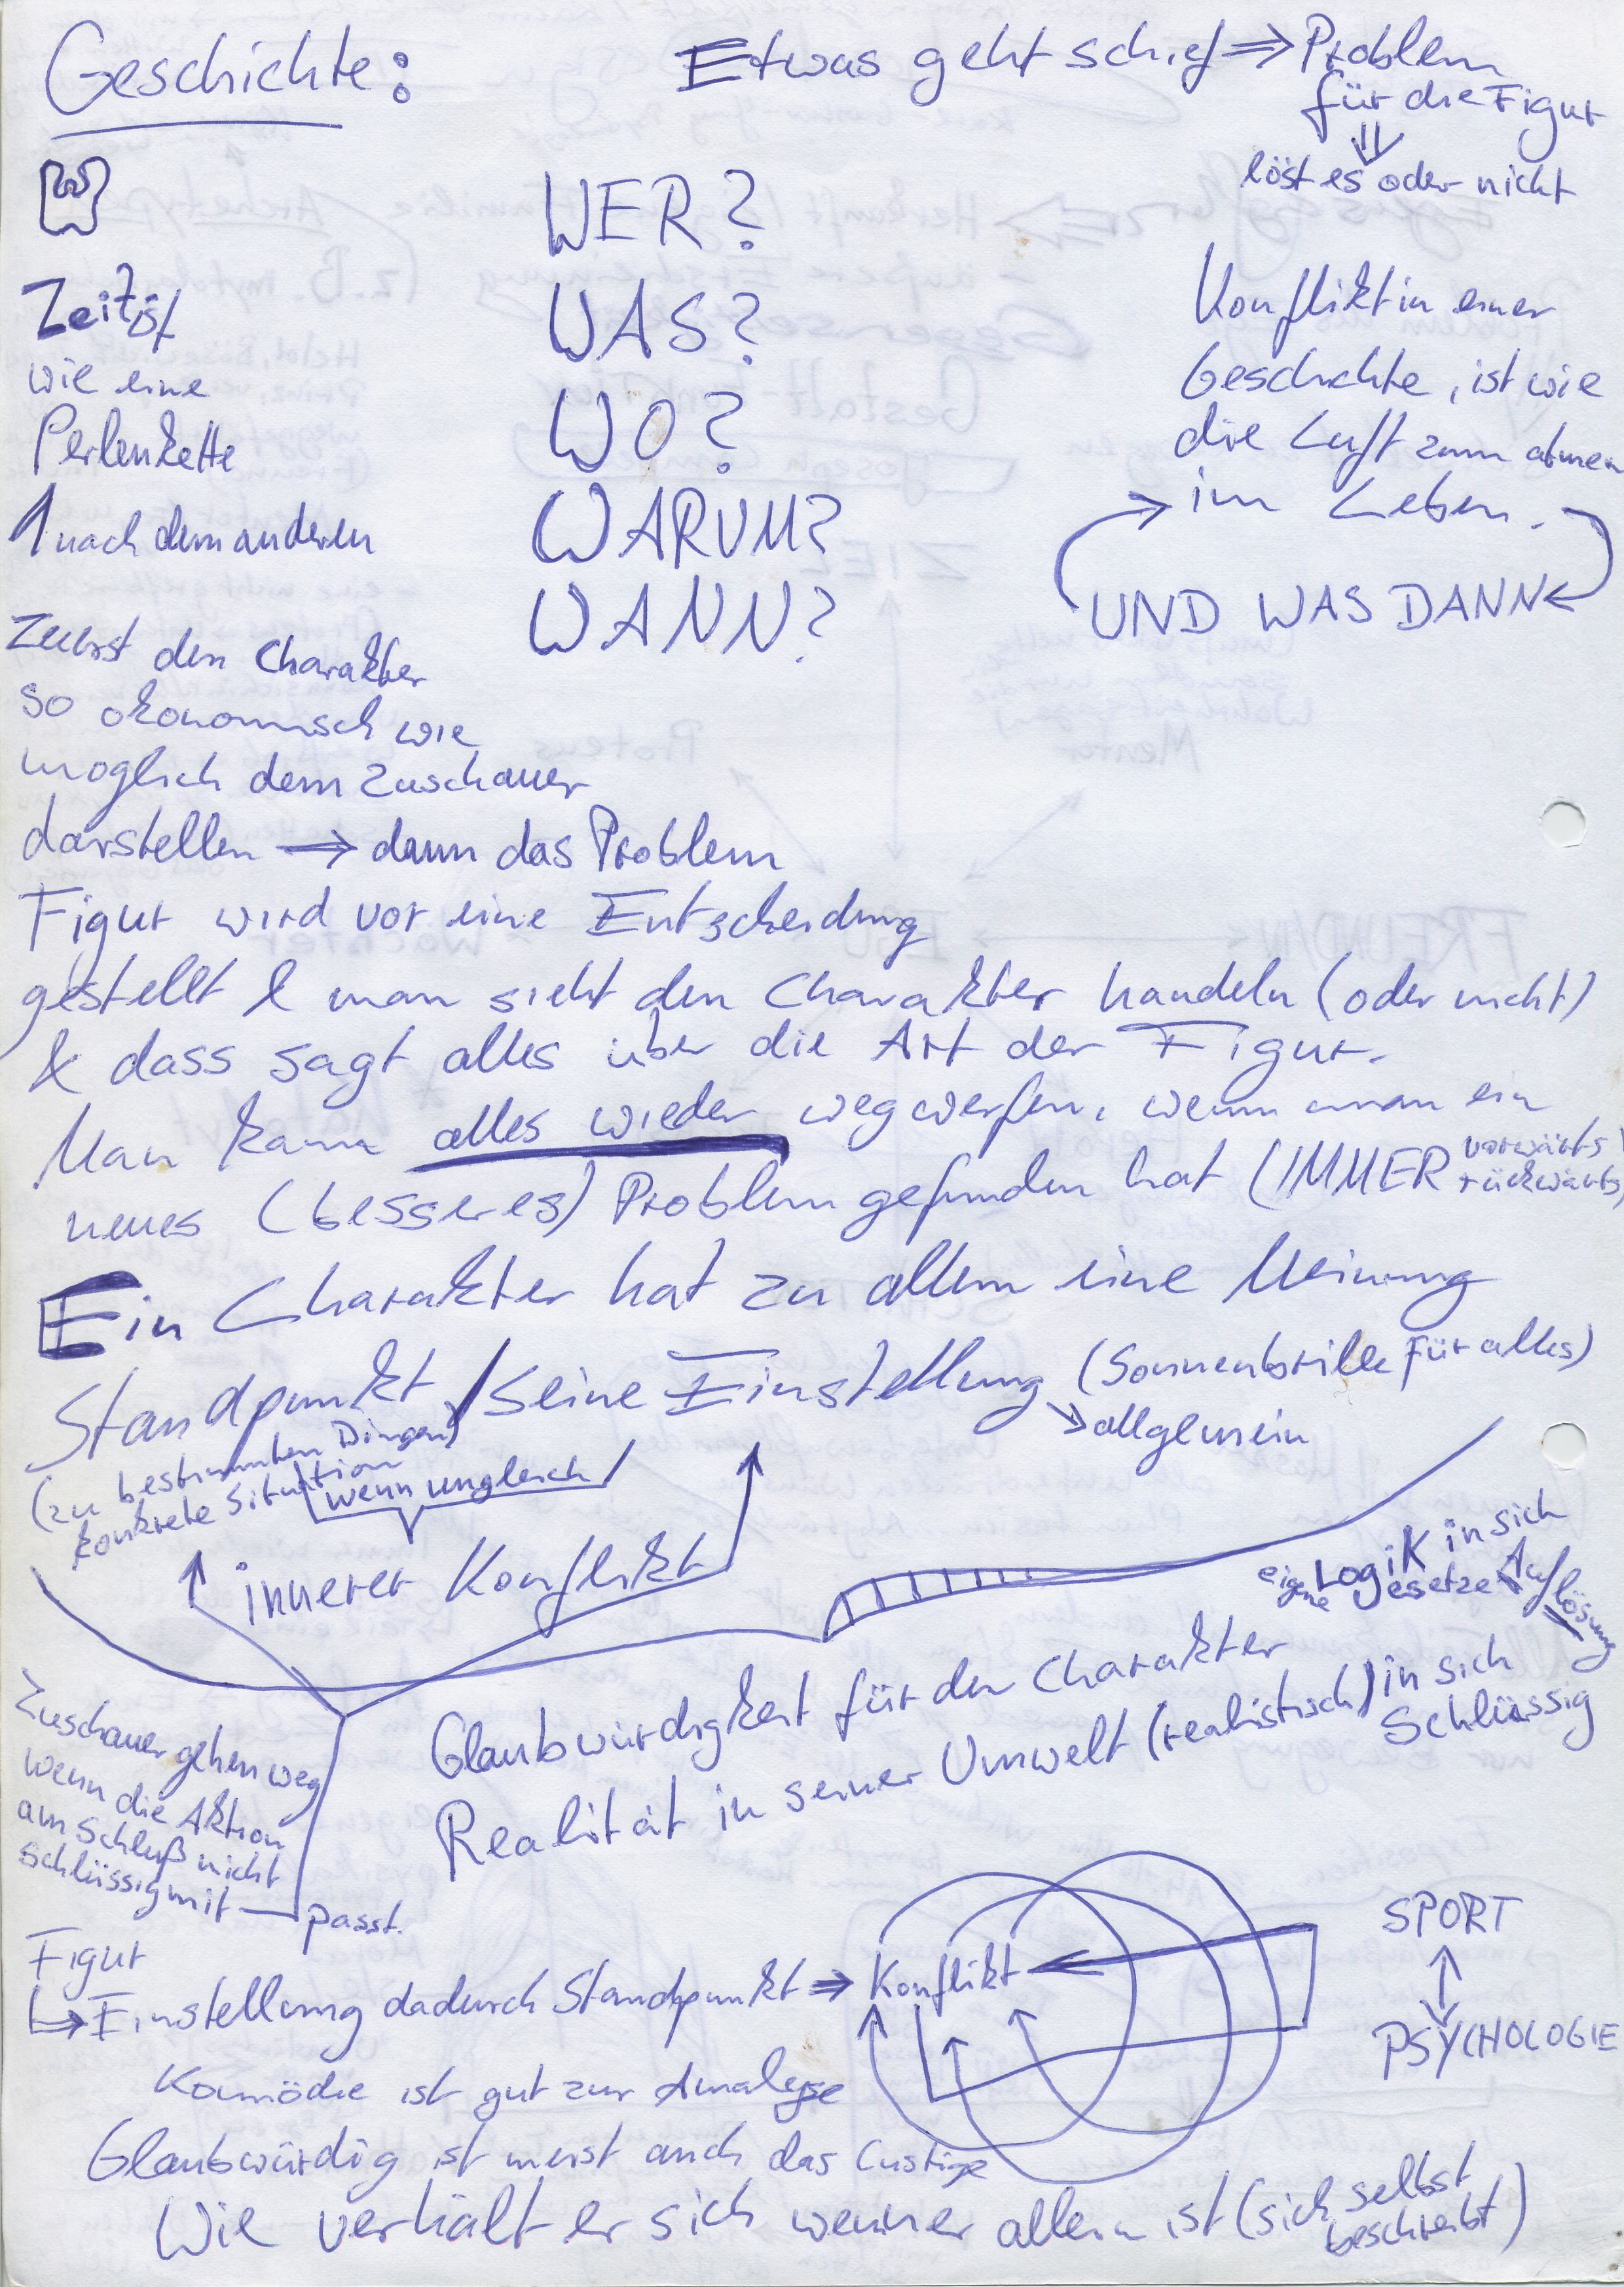 Geschichte:
Etwas geht schief ⇒ Problem
für die Figur
⇓
löst es oder nicht
WER?
WAS?
WO?
WARUM?
WANN?
Zeit ist
wie eine
Perlenkette
1 nach dem anderen
Konflikt in einer
Geschichte, ist wie
die Luft zum atmen
im Leben.
UND WAS DANN
Zuerst den Charakter
so ökonomisch wie
möglich dem Zuschauer
darstellen ⇒ dann das Problem
Figur wird vor eine Entscheidung
gestellt & man sieht den Charakter handeln (oder nicht)
& dass sagt alles über die Art der Figur.
Man kann alles wieder wegwerfen, wenn man ein
neues (besseres) Problem gefunden hat (IMMER vorwärts
rückwärts)
Ein Charakter hat zu allem eine Meinung
Standpunkt / seine Einstellung (Sonnenbrille für alles)
→ allgemein
(zu bestimmten Dingen)
konkrete Situation
wenn ungleich
innerer Konflikt
eigene Logik in sich
Gesetze
Auflösung
Glaubwürdigkeit für den Charakter
Realität in seiner Umwelt (realistisch) in sich
Schlüssig
Zuschauer gehen weg
wenn die Aktion
am Schluß nicht
schlüssig mit — passt.
Figur
↳ Einstellung dadurch Standpunkt ⇒ Konflikt
SPORT
↕
PSYCHOLOGIE
Komödie ist gut zur Analyse
Glaubwürdig ist meist auch das Lustige
Wie verhält er sich wenn er allein ist (sich selbst
beschreibt)